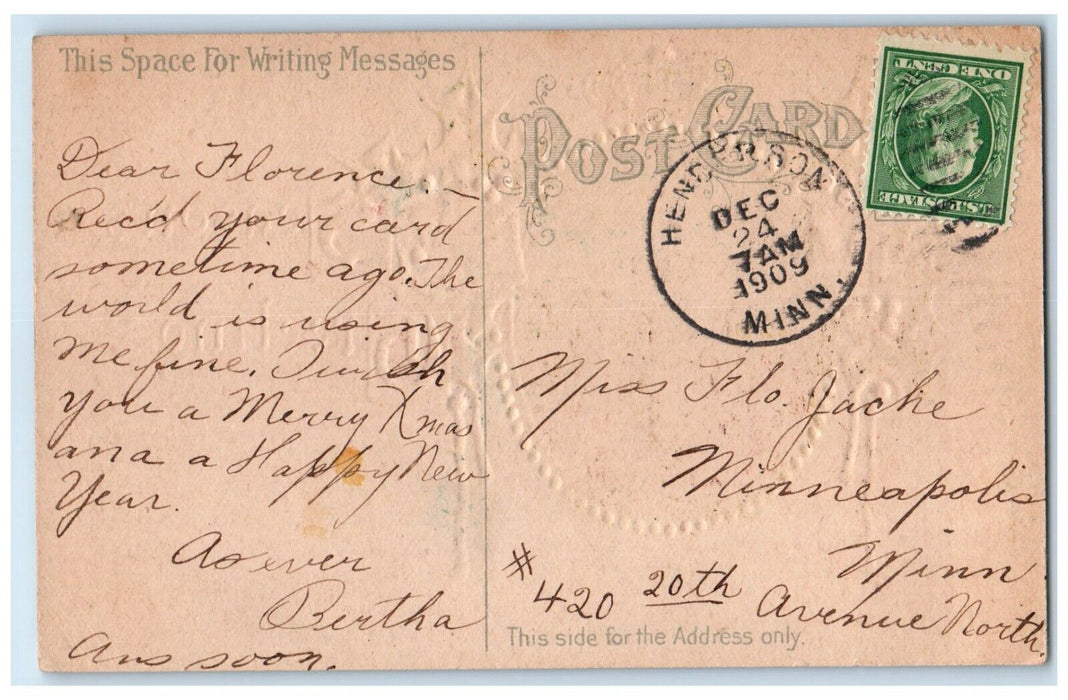 This Space For Writing Messages
Dear Florence,—
Rec'd your card
sometime ago. The
world is using
me fine. I wish
you a Merry Xmas
and a Happy New
Year.
As ever
Bertha
Ans soon.
POST CARD
HENDERSON
DEC
24
7 AM
1909
MINN.
U.S. POSTAGE
ONE CENT
Miss Flo. Jache
Minneapolis
Minn.
# 420 20th Avenue North.
This side for the Address only.